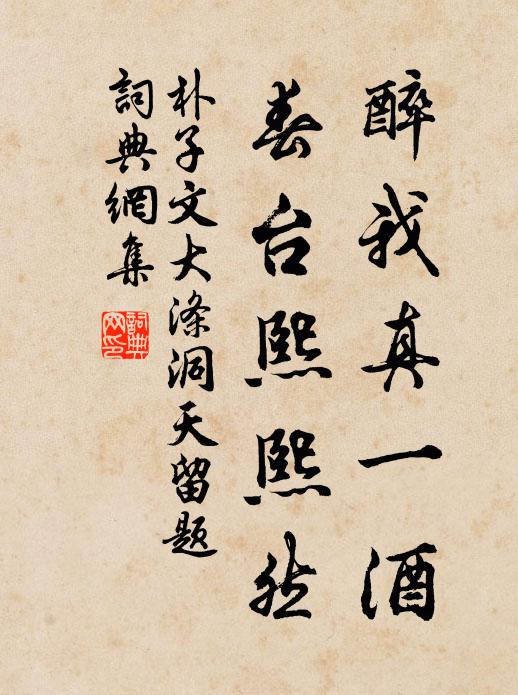 醉我真一酒
春台熙熙然
朴子文大滌洞天留題
詞典網集
詞典網印